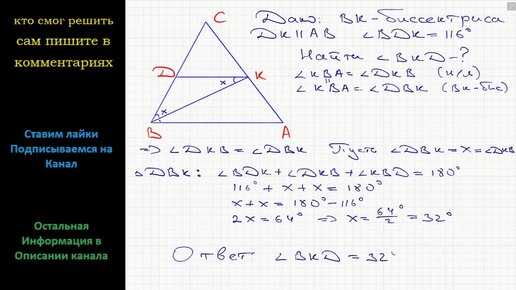 кто смог решить
сам пишите в
комментариях
Ставим лайки
Подписываемся на
Канал
Остальная
Информация в
Описании канала
C
D
K
x
x
B
A
Дано: BK-биссектриса
DK∥AB ∠BDK=116°
Найти ∠BKD-?
∠KBA=∠DKB (н/л)
∠KBA=∠DBK (BK-бис)
=> ∠DKB=∠DBK Пусть ∠DBK=x=∠DKB
△DBK: ∠BDK+∠DKB+∠KBD=180°
116°+x+x=180°
x+x=180°-116°
2x=64° => x=64°/2=32°
Ответ: ∠BKD=32°